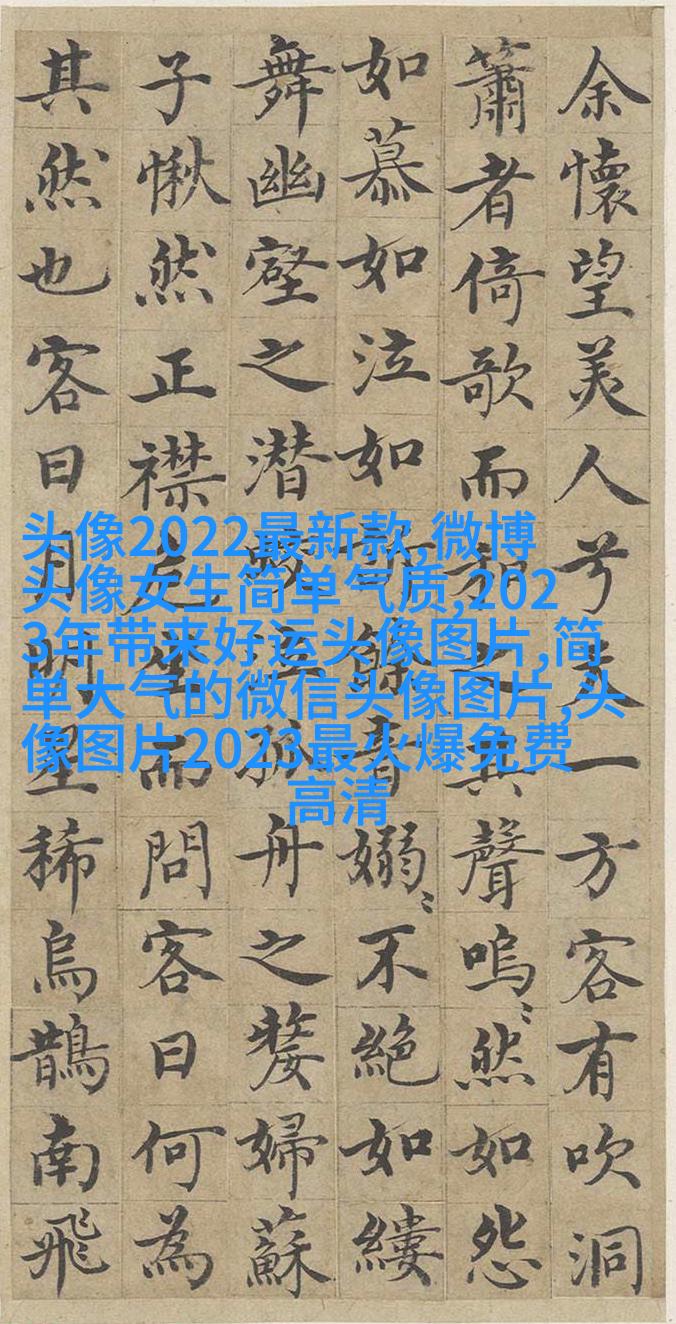 余懷望美人兮天一方客有吹洞
簫者倚歌而和之其聲嗚〻然如怨
如慕如泣如訴餘音嫋〻不絕如縷
舞幽壑之潛蛟泣孤舟之嫠婦蘇
子愀然正襟危坐而問客曰何為
其然也客曰月明星稀烏鵲南飛
头像2022最新款,微博
头像女生简单气质,202
3年带来好运头像图片,简
单大气的微信头像图片,头
像图片2023最火爆免费
高清